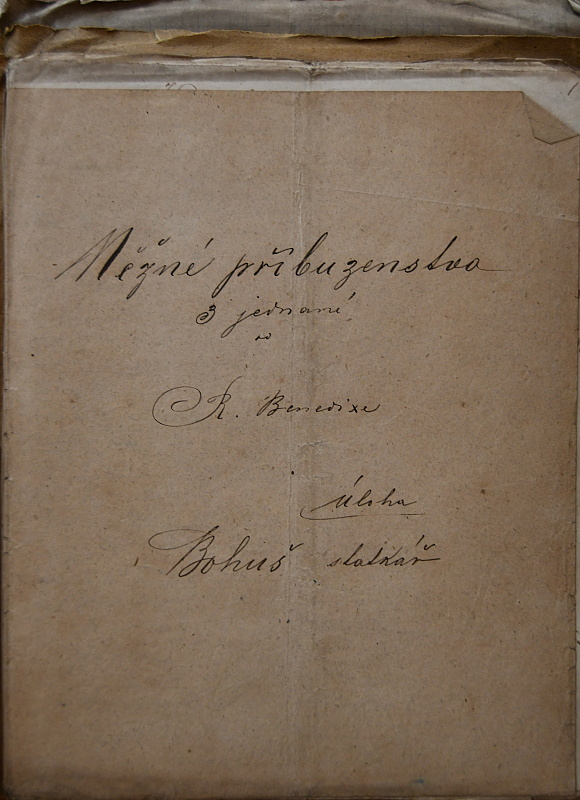 Něžné příbuzenstvo
3 jednání
od
R. Benedixe
Úloha
Bohuš statkář